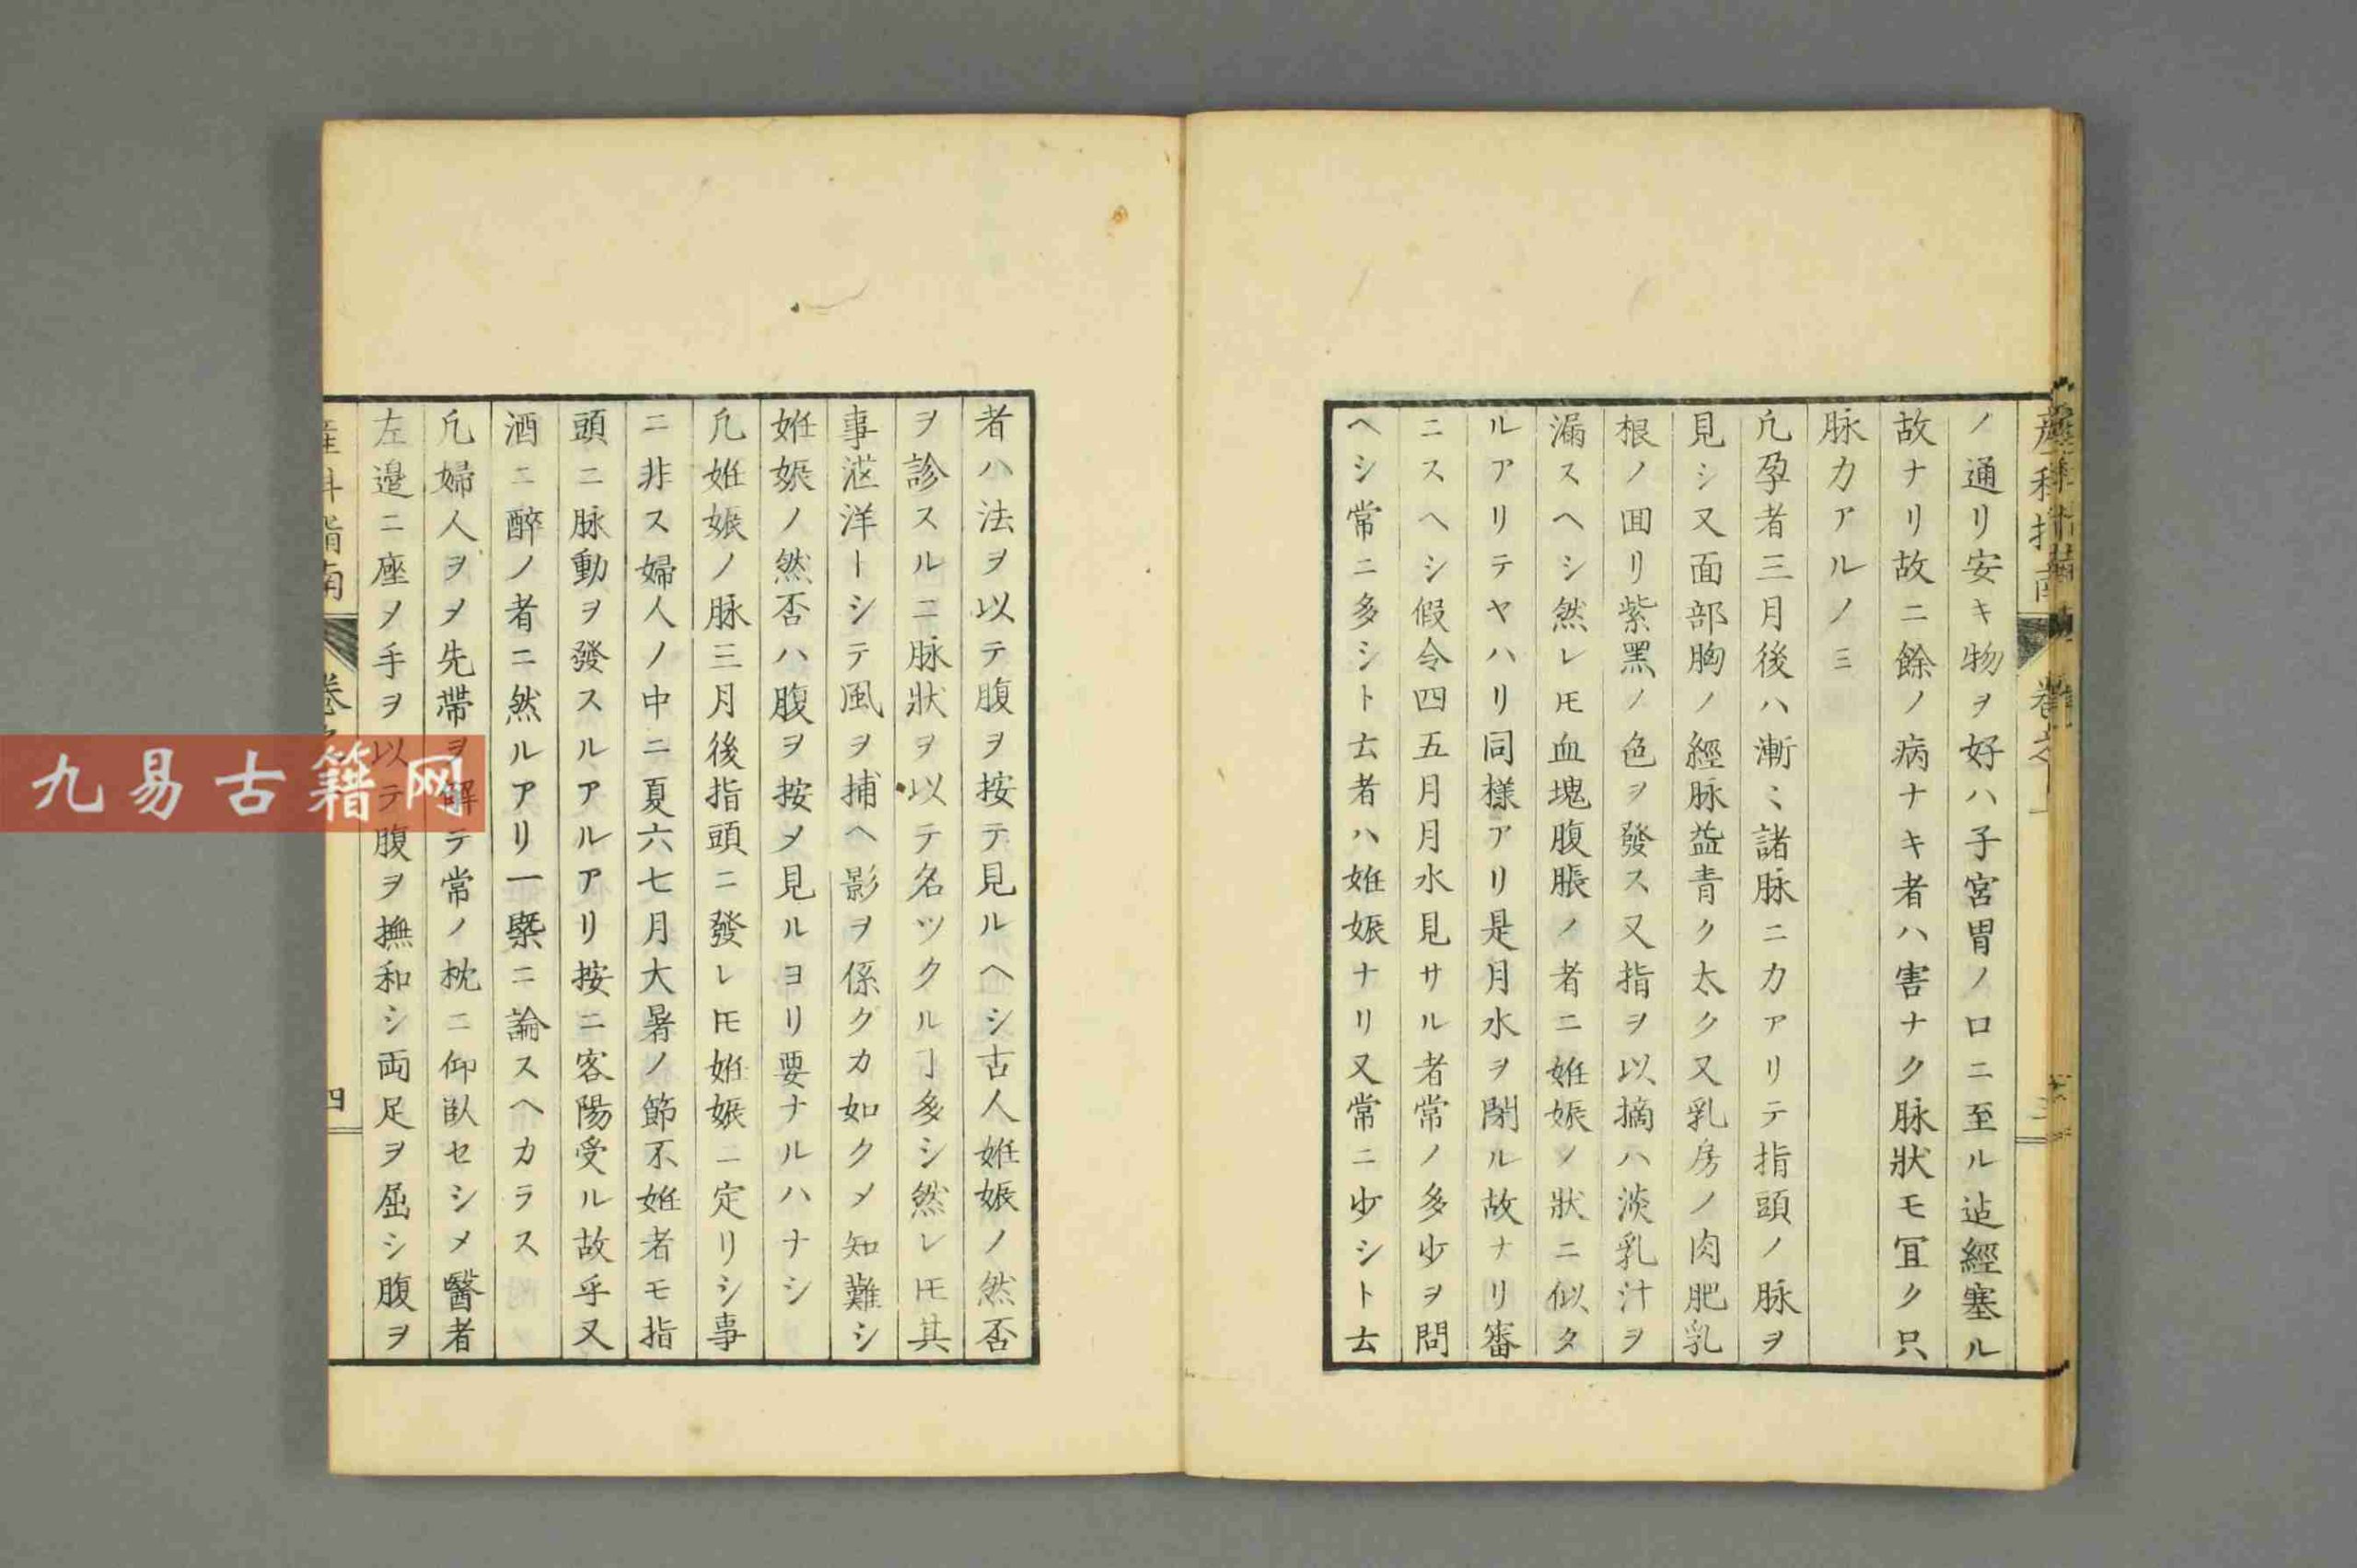 産科指南
卷之一
三
ノ通リ安キ物ヲ好ハ子宮胃ノ口ニ至ル迠經塞ル
故ナリ故ニ餘ノ病ナキ者ハ害ナク脉狀モ冝ク只
脉カアルノミ
凢孕者三月後ハ漸〻諸脉ニカアリテ指頭ノ脉ヲ
見シ又面部胸ノ經脉益青ク太ク又乳房ノ肉肥乳
根ノ囬リ紫黑ノ色ヲ發ス又指ヲ以摘ハ淡乳汁ヲ
漏スヘシ然レ𪜈血塊腹脹ノ者ニ姙娠ノ狀ニ似タ
ルアリテヤハリ同樣アリ是月水ヲ閉ル故ナリ審
ニスヘシ假令四五月月水見サル者常ノ多少ヲ問
ヘシ常ニ多シト云者ハ姙娠ナリ又常ニ少シト云
者ハ法ヲ以テ腹ヲ按テ見ルヘシ古人姙娠ノ然否
ヲ診スルニ脉狀ヲ以テ名ツクルヿ多シ然レ𪜈其
事茫洋トシテ風ヲ捕ヘ影ヲ係クカ如クメ知難シ
姙娠ノ然否ハ腹ヲ按メ見ルヨリ要ナルハナシ
凢姙娠ノ脉三月後指頭ニ發レ𪜈姙娠ニ定リシ事
ニ非ス婦人ノ中ニ夏六七月大暑ノ節不姙者モ指
頭ニ脉動ヲ發スルアルアリ按ニ客陽受ル故乎又
酒ニ醉ノ者ニ然ルアリ一槩ニ論スヘカラス
凢婦人ヲメ先帶ヲ解テ常ノ枕ニ仰臥セシメ醫者
左邉ニ座ヲ手ヲ以テ腹ヲ撫和シ両足ヲ屈シ腹ヲ
産科指南
卷之
四
九易古籍网